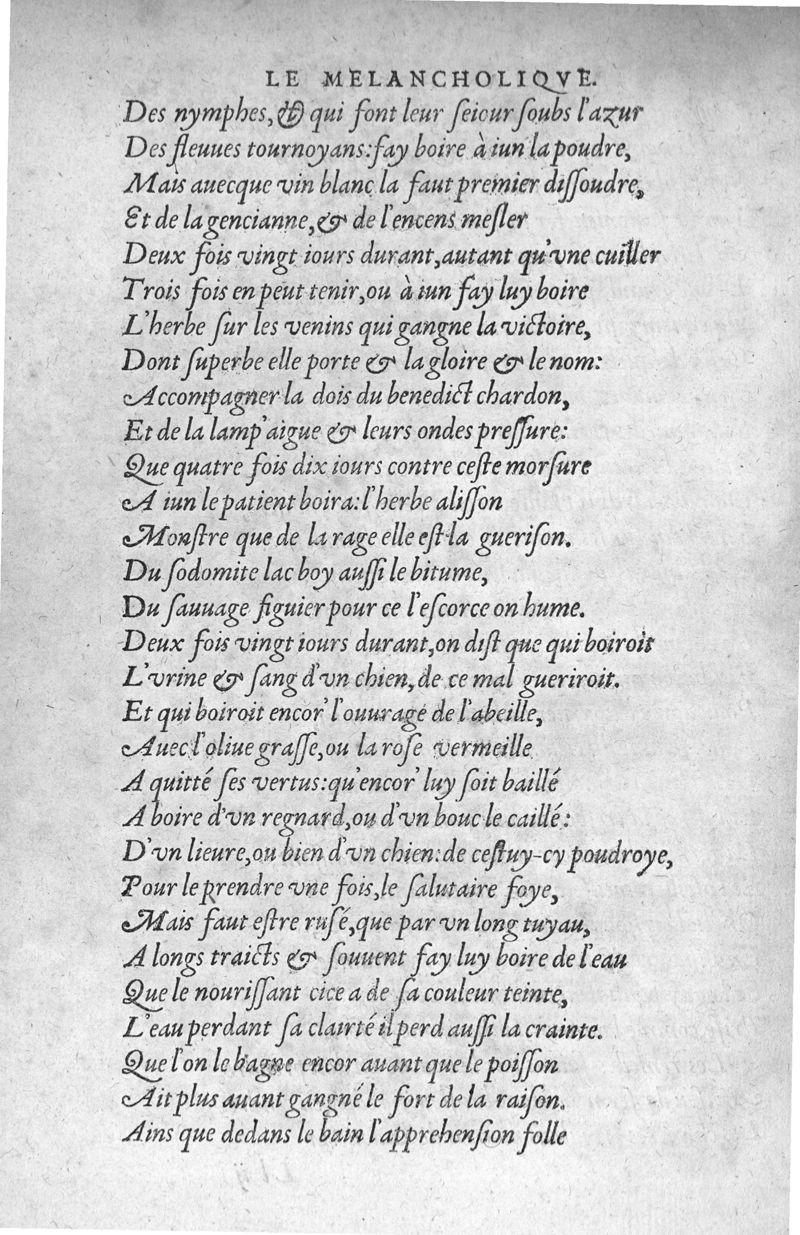 LE MELANCHOLIQVE.
Des nymphes, & qui font leur ſeiour ſoubs l'azur
Des fleuues tournoyans: fay boire à iun la poudre,
Mais auecque vin blanc la faut premier diſſoudre,
Et de la gencianne, & de l'encens meſler
Deux fois vingt iours durant, autant qu'vne cuiller
Trois fois en peut tenir, ou à iun fay luy boire
L'herbe ſur les venins qui gangne la victoire,
Dont ſuperbe elle porte & la gloire & le nom:
Accompagner la dois du benedict chardon,
Et de la lamp'aigue & leurs ondes preſſure:
Que quatre fois dix iours contre ceſte morſure
A iun le patient boira: l'herbe aliſſon
Monſtre que de la rage elle eſt la gueriſon.
Du ſodomite lac boy auſſi le bitume,
Du ſauuage figuier pour ce l'eſcorce on hume.
Deux fois vingt iours durant, on diſt que qui boiroit
L'vrine & ſang d'vn chien, de ce mal gueriroit.
Et qui boiroit encor' l'ouurage de l'abeille,
Auec l'oliue graſſe, ou la roſe vermeille
A quitté ſes vertus: qu'encor' luy ſoit baillé
A boire d'vn regnard, ou d'vn bouc le caillé:
D'vn lieure, ou bien d'vn chien: de ceſtuy-cy poudroye,
Pour le prendre vne fois, le ſalutaire foye,
Mais faut eſtre ruſé, que par vn long tuyau,
A longs traicts & ſouuent fay luy boire de l'eau
Que le nouriſſant cice a de ſa couleur teinte,
L'eau perdant ſa clairté il perd auſſi la crainte.
Que l'on le bagne encor auant que le poiſſon
Ait plus auant gangné le fort de la raiſon.
Ains que dedans le bain l'apprehenſion folle